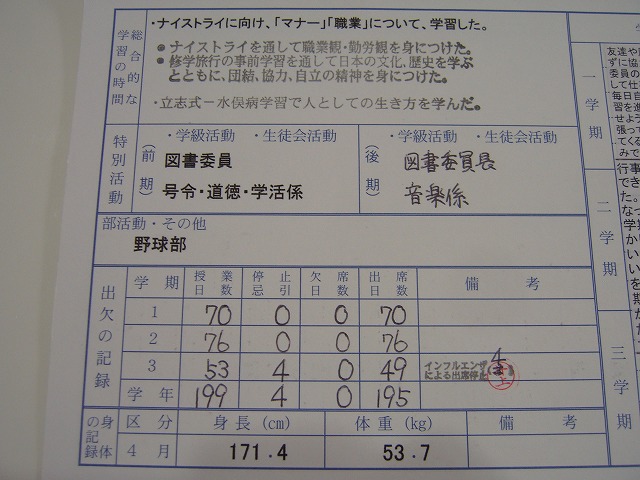 総合的な学習の時間
・ナイストライに向け、「マナー」「職業」について、学習した。
●ナイストライを通して職業観・勤労観を身につけた。
●修学旅行の事前学習を通して日本の文化、歴史を学ぶとともに、団結、協力、自立の精神を身につけた。
・立志式－水俣病学習で人としての生き方を学んだ。
特別活動
(前期)
・学級活動 ・生徒会活動
図書委員
号令・道徳・学活係
(後期)
・学級活動 ・生徒会活動
図書委員長
音楽係
部活動・その他
野球部
出欠の記録
学期 授業日数 停止忌引 欠席日数 出席日数 備考
1 70 0 0 70
2 76 0 0 76
3 53 4 0 49 インフルエンザによる出席停止 4
学年 199 4 0 195
身体の記録
区分 身長(cm) 体重(kg) 備考
4月 171.4 53.7
一学期
二学期
三学期